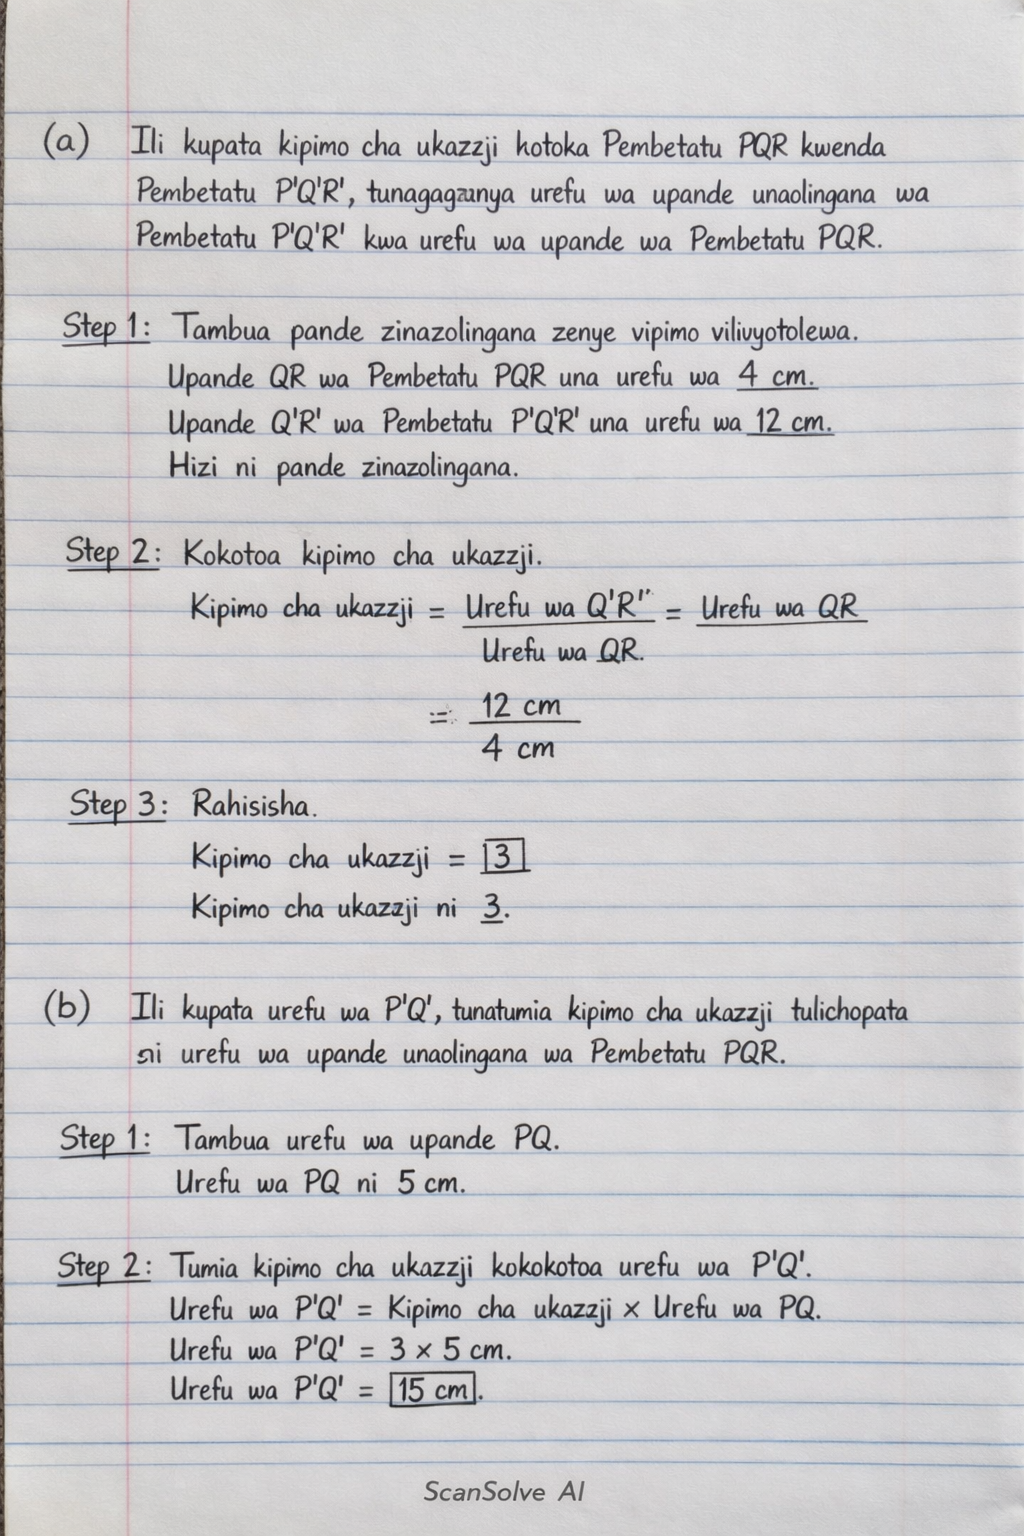 (a) Ili kupata kipimo cha ukazzji kotoka Pembetatu PQR kwenda
Pembetatu P'Q'R', tunagagzunya urefu wa upande unaolingana wa
Pembetatu P'Q'R' kwa urefu wa upande wa Pembetatu PQR.
Step 1: Tambua pande zinazolingana zenye vipimo vilivyotolewa.
Upande QR wa Pembetatu PQR una urefu wa 4 cm.
Upande Q'R' wa Pembetatu P'Q'R' una urefu wa 12 cm.
Hizi ni pande zinazolingana.
Step 2: Kokotoa kipimo cha ukazzji.
Kipimo cha ukazzji = Urefu wa Q'R'' = Urefu wa QR
Urefu wa QR.
= 12 cm
4 cm
Step 3: Rahisisha.
Kipimo cha ukazzji = 3
Kipimo cha ukazzji ni 3.
(b) Ili kupata urefu wa P'Q', tunatumia kipimo cha ukazzji tulichopata
ni urefu wa upande unaolingana wa Pembetatu PQR.
Step 1: Tambua urefu wa upande PQ.
Urefu wa PQ ni 5 cm.
Step 2: Tumia kipimo cha ukazzji kokokotoa urefu wa P'Q'.
Urefu wa P'Q' = Kipimo cha ukazzji × Urefu wa PQ.
Urefu wa P'Q' = 3 × 5 cm.
Urefu wa P'Q' = 15 cm.
ScanSolve AI